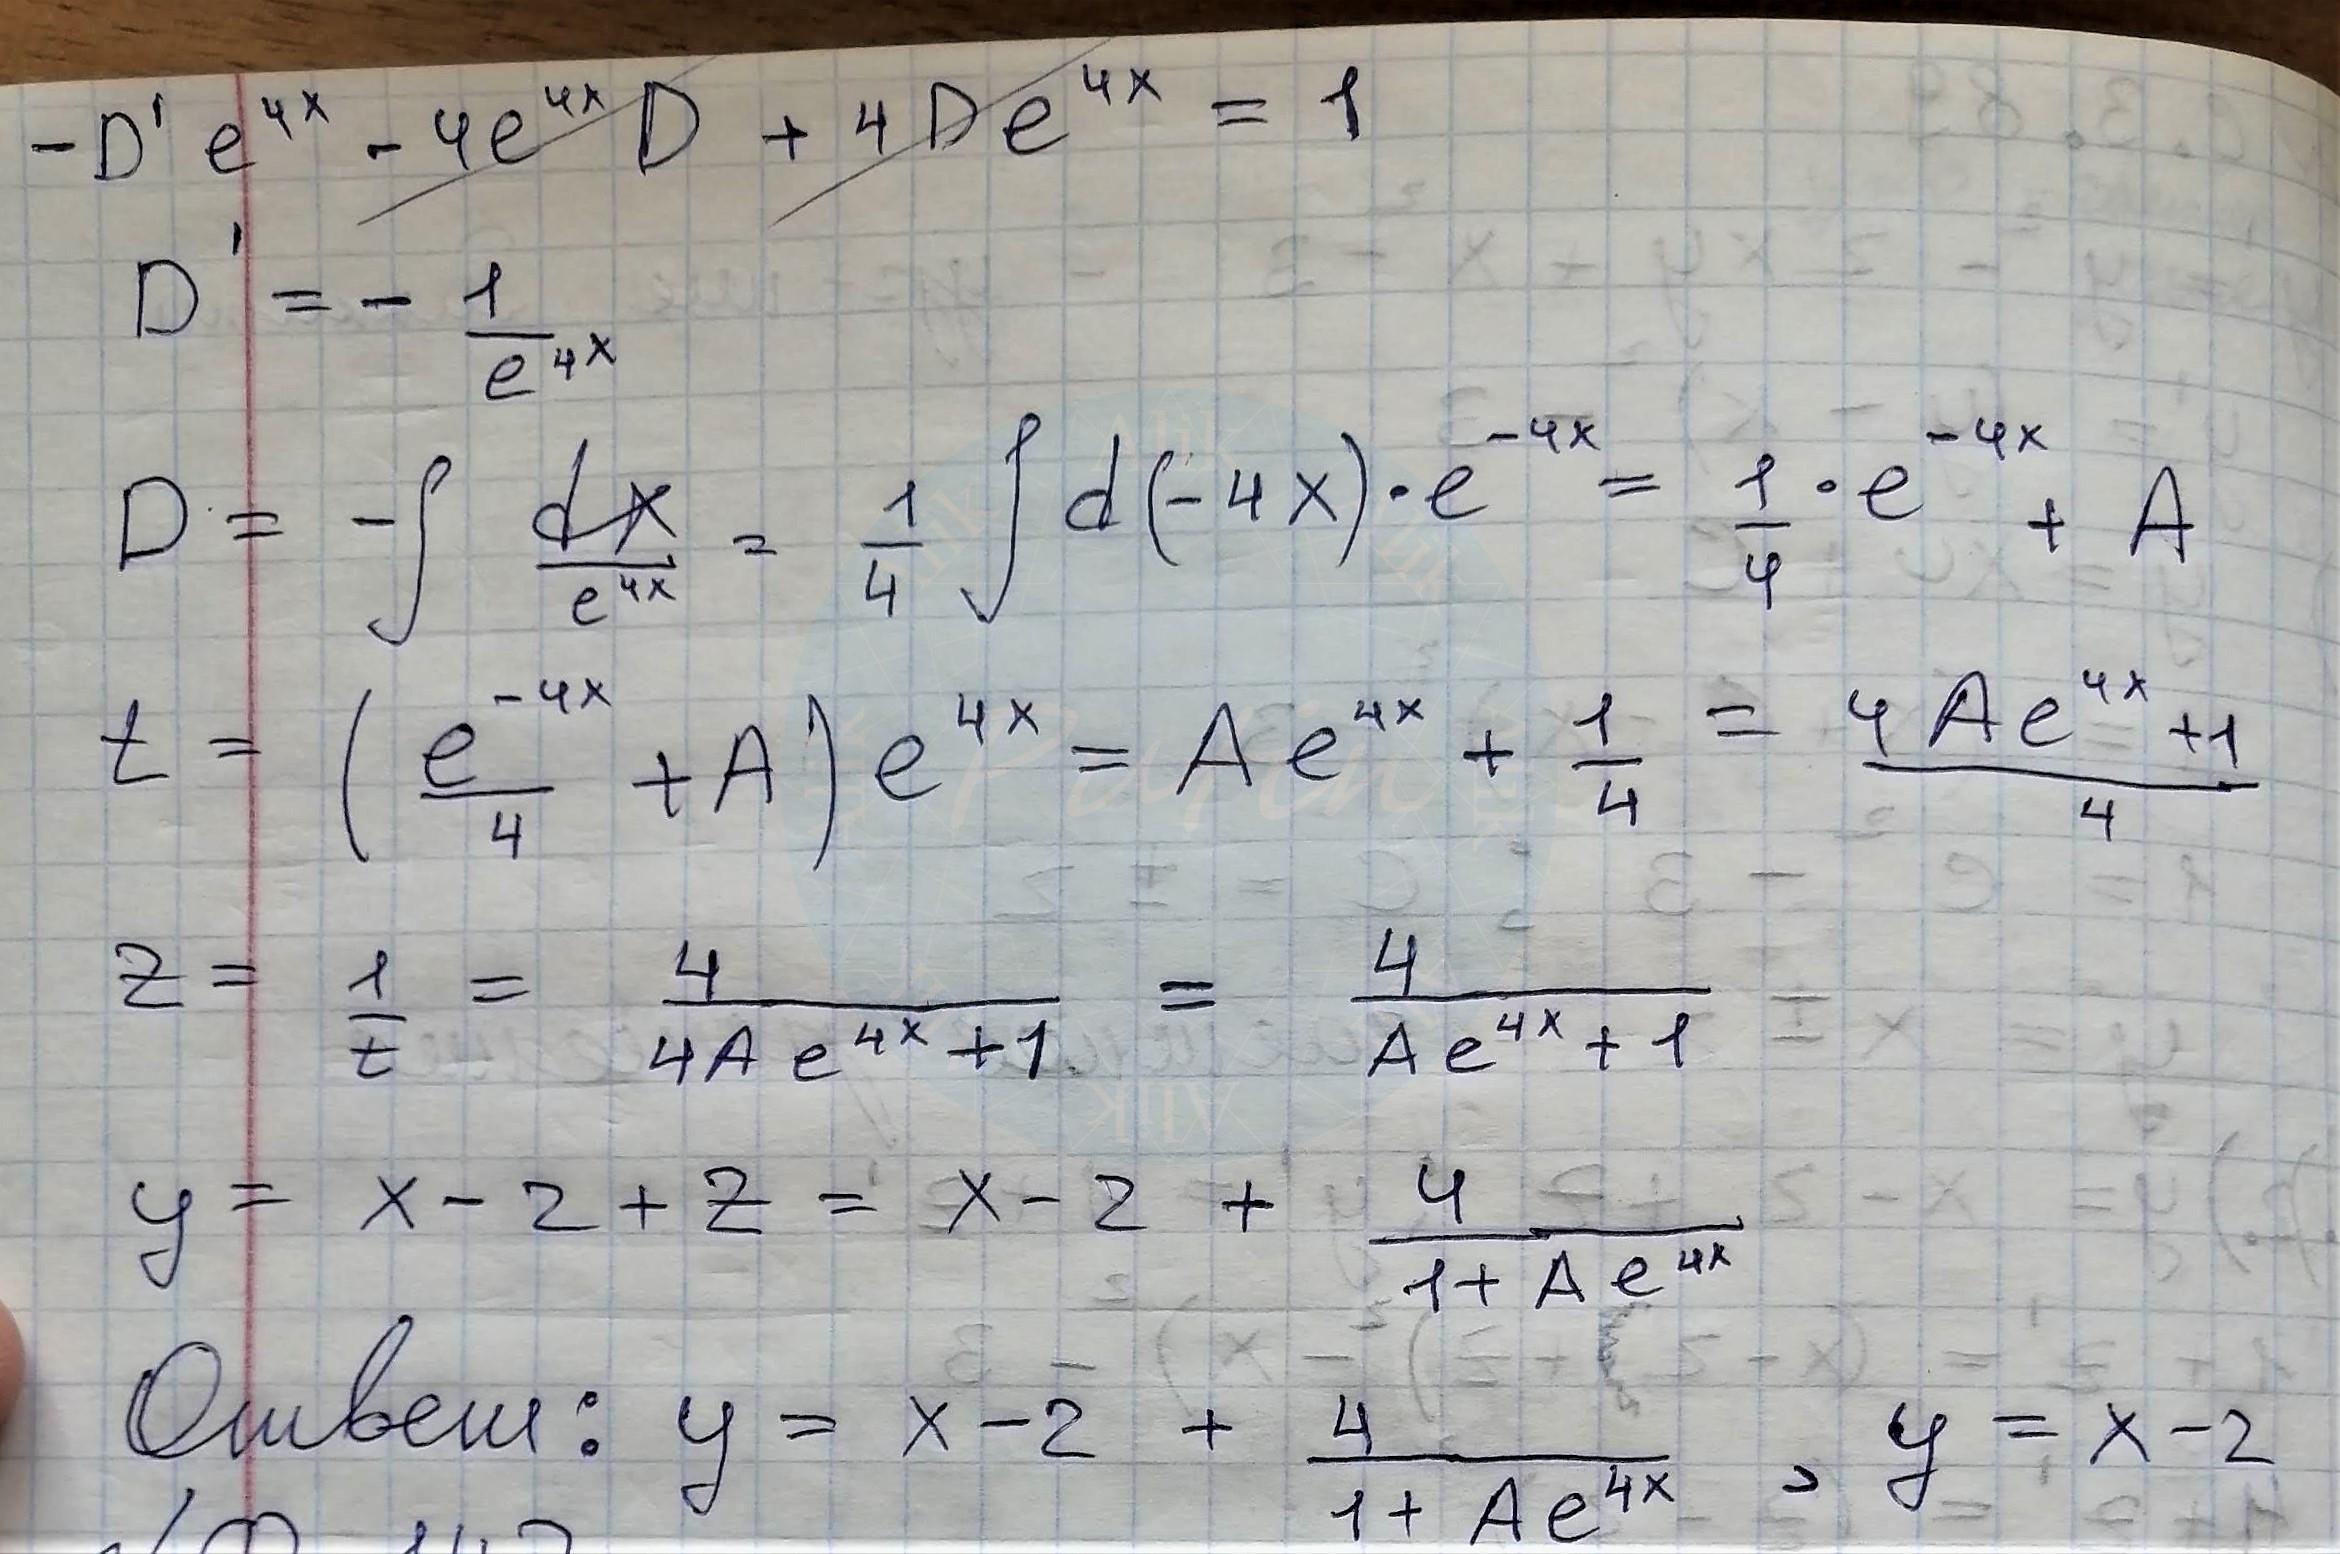 -D' e^{4x} - 4e^{4x} D + 4De^{4x} = 1
D' = - \frac{1}{e^{4x}}
D = -∫ \frac{dx}{e^{4x}} = \frac{1}{4} ∫ d(-4x) · e^{-4x} = \frac{1}{4} · e^{-4x} + A
t = (\frac{e^{-4x}}{4} + A) e^{4x} = A e^{4x} + \frac{1}{4} = \frac{4Ae^{4x} + 1}{4}
z = \frac{1}{t} = \frac{4}{4Ae^{4x} + 1} = \frac{4}{Ae^{4x} + 1}
y = x - 2 + z = x - 2 + \frac{4}{1 + Ae^{4x}}
Ответ: y = x - 2 + \frac{4}{1 + Ae^{4x}}, y = x - 2